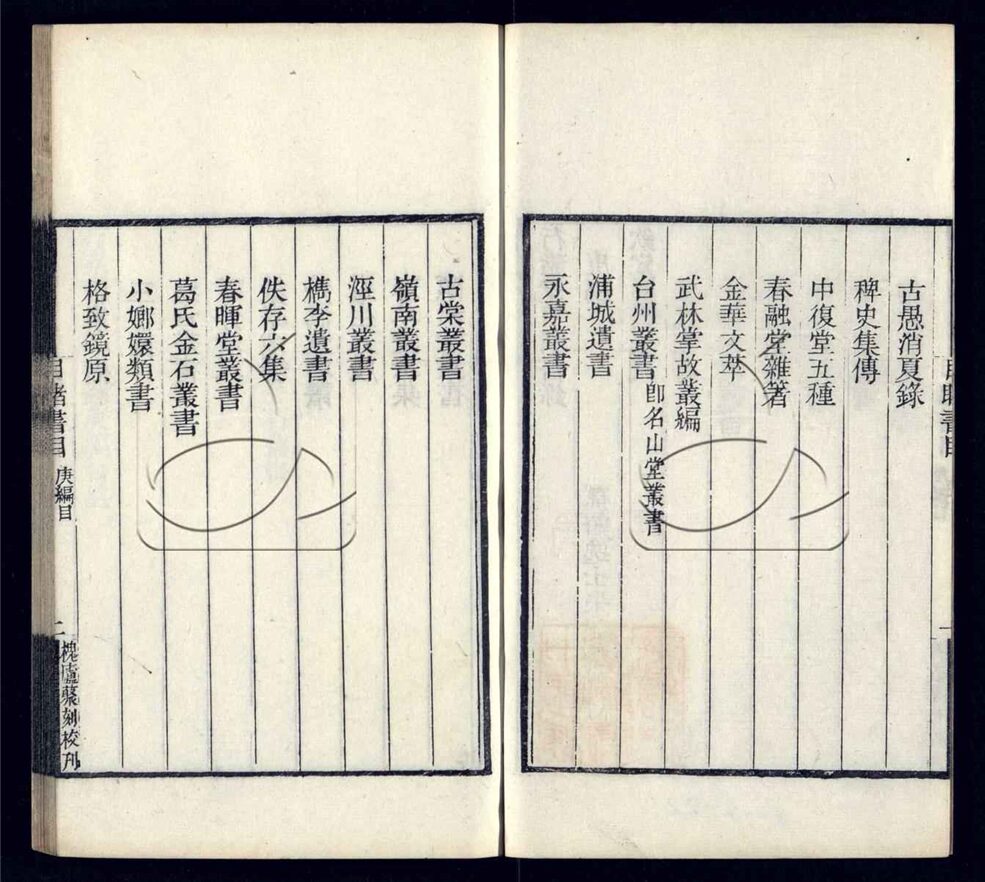 古愚消夏錄
稗史集傳
中復堂五種
春融堂雜著
金華文萃
武林掌故叢編
台州叢書 卽名山堂叢書
浦城遺書
永嘉叢書
古棠叢書
嶺南叢書
涇川叢書
檇李遺書
佚存六集
春暉堂叢書
葛氏金石叢書
小嫏嬛類書
格致鏡原
目睹書目 庚編目 二 槐廬叢刻校刊